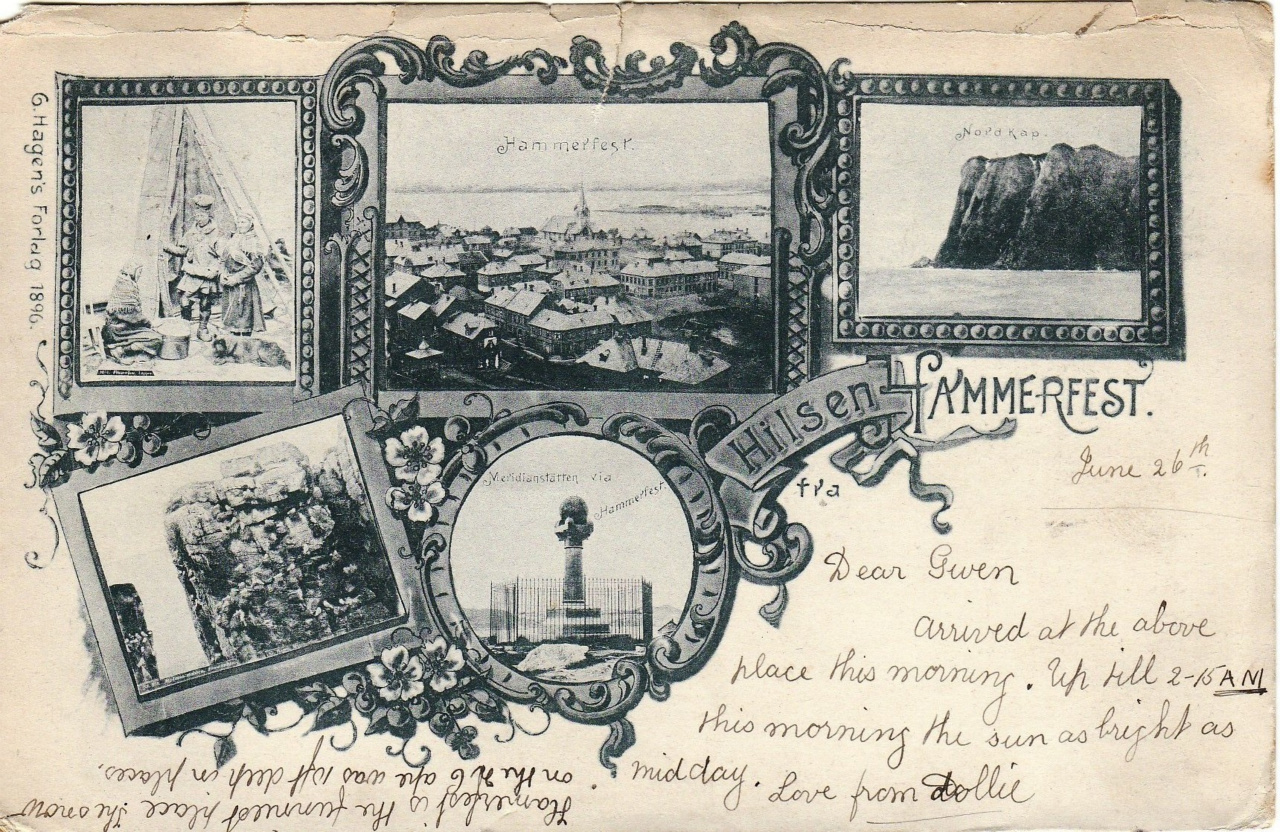 G. Hagen's Forlag 1896.
Hammerfest.
Nordkap.
Meridianstøtten via
Hammerfest.
Hilsen
fra
HAMMERFEST.
June 26th
Dear Gwen
arrived at the above
place this morning. Up till 2-15 AM
this morning the sun as bright as
midday.
Love from Dollie
Hamerfest is the funniest place the snow
on the N Cape was 10ft deep in places.